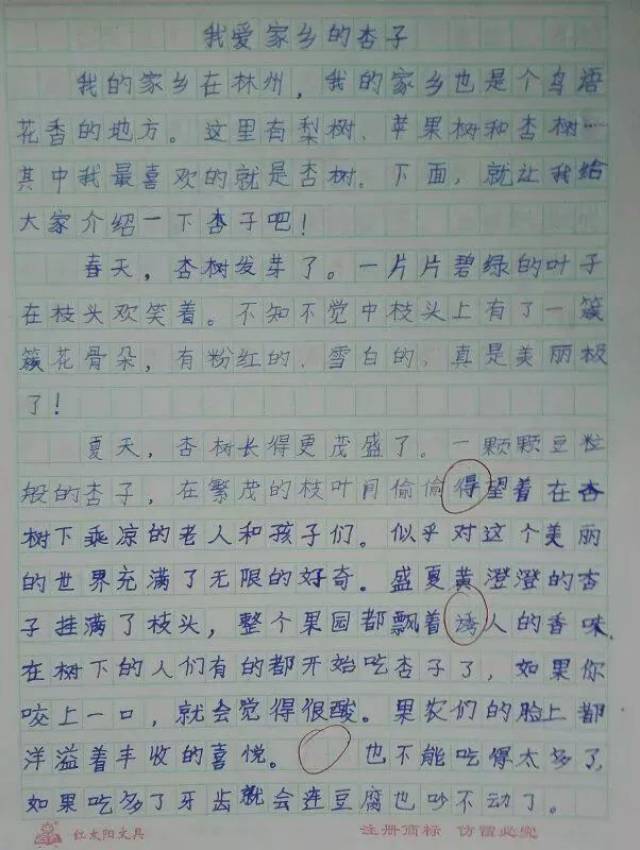 我爱家乡的杏子
我的家乡在林州，我的家乡也是个鸟语
花香的地方。这里有梨树、苹果树和杏树…
其中我最喜欢的就是杏树。下面，就让我给
大家介绍一下杏子吧！
春天，杏树发芽了。一片片碧绿的叶子
在枝头欢笑着。不知不觉中枝头上有了一簇
簇花骨朵，有粉红的、雪白的、真是美丽极
了！
夏天，杏树长得更茂盛了。一颗颗豆粒
般的杏子，在繁茂的枝叶间偷偷得望着在杏
树下乘凉的老人和孩子们。似乎对这个美丽
的世界充满了无限的好奇。盛夏黄澄澄的杏
子挂满了枝头，整个果园都飘着诱人的香味，
在树下的人们有的都开始吃杏子了，如果你
咬上一口，就会觉得很酸。果农们的脸上都
洋溢着丰收的喜悦。 也不能吃得太多了，
如果吃多了牙齿就会连豆腐也吵不动了。
红太阳文具 注册商标 仿冒必究